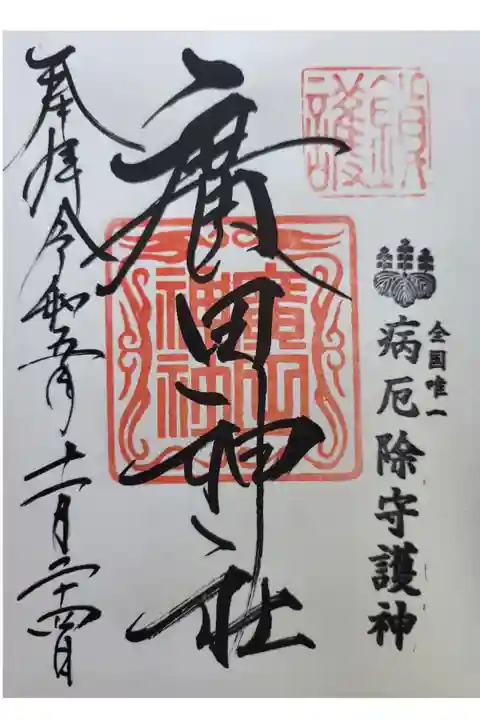 全国唯一
病厄除守護神
廣田神社
奉拝 令和五年 十一月二十四日